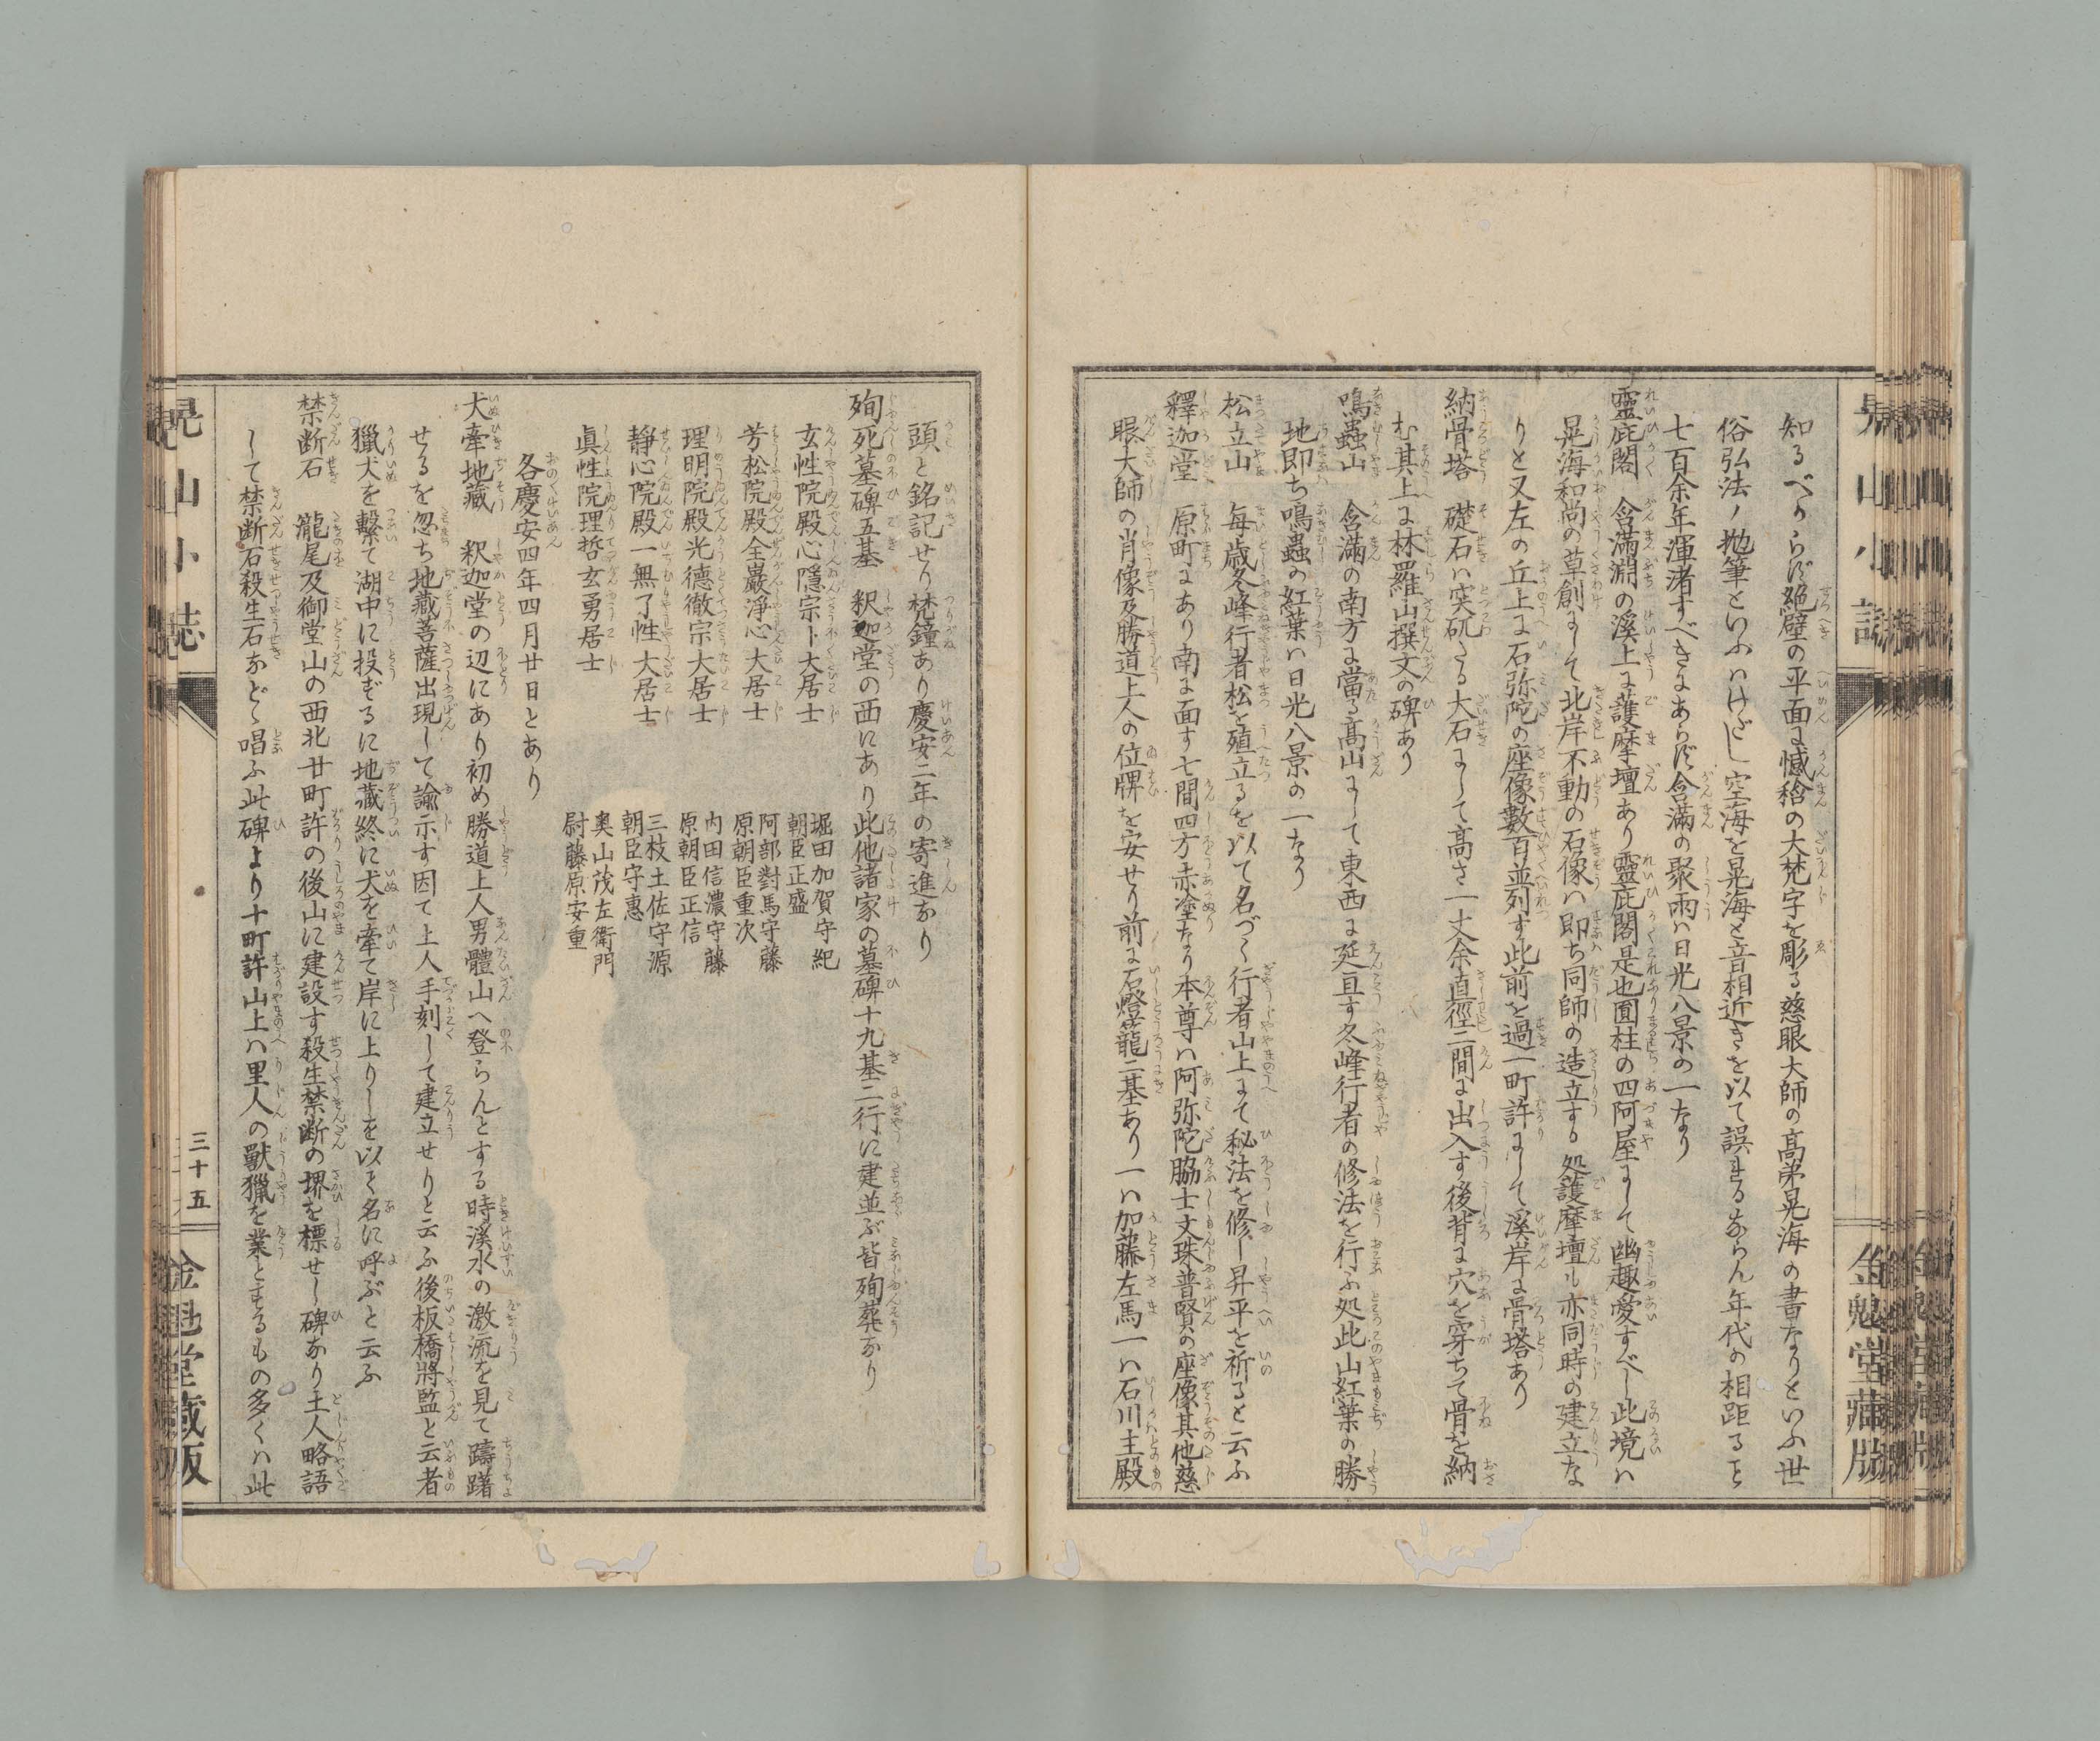 知るべからず絶壁の平面に憾𤚥の大梵字を彫る慈眼大師の高弟晃海の書なりといふ世
俗弘法ノ抛筆といふハけだし空海を晃海と音相近きを以て誤まるならん年代の相距ると
七百余年渾渚すべきにあらず含滿の聚雨ハ日光八景の一なり
靈庇閣 含滿淵の溪上に護摩壇あり靈庇閣是也圓柱の四阿屋にして幽趣愛すべし此境ハ
晃海和尚の草創にして北岸不動の石像ハ即ち同師の造立する処護摩壇も亦同時の建立な
りと又左の丘上に石弥陀の座像數百並列す此前を過一町許にして溪岸に骨塔あり
納骨塔 礎石ハ突矹たる大石にして高さ一丈余直徑二間に出入す後背に穴を穿ちて骨を納
む其上に林羅山撰文の碑あり
鳴蟲山 含滿の南方に當る高山にして東西に延亘す冬峰行者の修法を行ふ処此山紅葉の勝
地即ち鳴蟲の紅葉ハ日光八景の一なり
松立山 毎歳冬峰行者松を殖立るを以て名づく行者山上にて秘法を修し昇平を祈ると云ふ
釋迦堂 原町にあり南に面す七間四方赤塗なり本尊ハ阿弥陀脇士文珠普賢の座像其他慈
眼大師の肖像及勝道上人の位牌を安せり前に石燈籠二基あり一ハ加藤左馬一ハ石川主殿
晃山小誌
金魁堂藏版
頭と銘記せり梵鐘あり慶安二年の寄進なり
殉死墓碑五基 釈迦堂の西にあり此他諸家の墓碑十九基二行に建並ぶ皆殉葬なり
玄性院殿心隱宗卜大居士 堀田加賀守紀朝臣正盛
芳松院殿全巖淨心大居士 阿部對馬守藤原朝臣重次
理明院殿光德徹宗大居士 内田信濃守藤原朝臣正信
靜心院殿一無了性大居士 三枝土佐守源朝臣守惠
眞性院理哲玄勇居士 奥山茂左衛門尉藤原安重
各慶安四年四月廿日とあり
犬牽地藏 釈迦堂の辺にあり初め勝道上人男體山へ登らんとする時溪水の激流を見て躊躇
せるを忽ち地藏菩薩出現して諭示す因て上人手刻して建立せりと云ふ後板橋將監と云者
獵犬を繫て湖中に投ずるに地藏終に犬を牽て岸に上りしを以て名に呼ぶと云ふ
禁断石 瀧尾及御堂山の西北廿町許の後山に建設す殺生禁断の堺を標せし碑なり土人略語
して禁断石殺生石など唱ふ此碑より十町許山上ハ里人の獸獵を業とするもの多くハ此
晃山小誌
三十五
金魁堂藏版